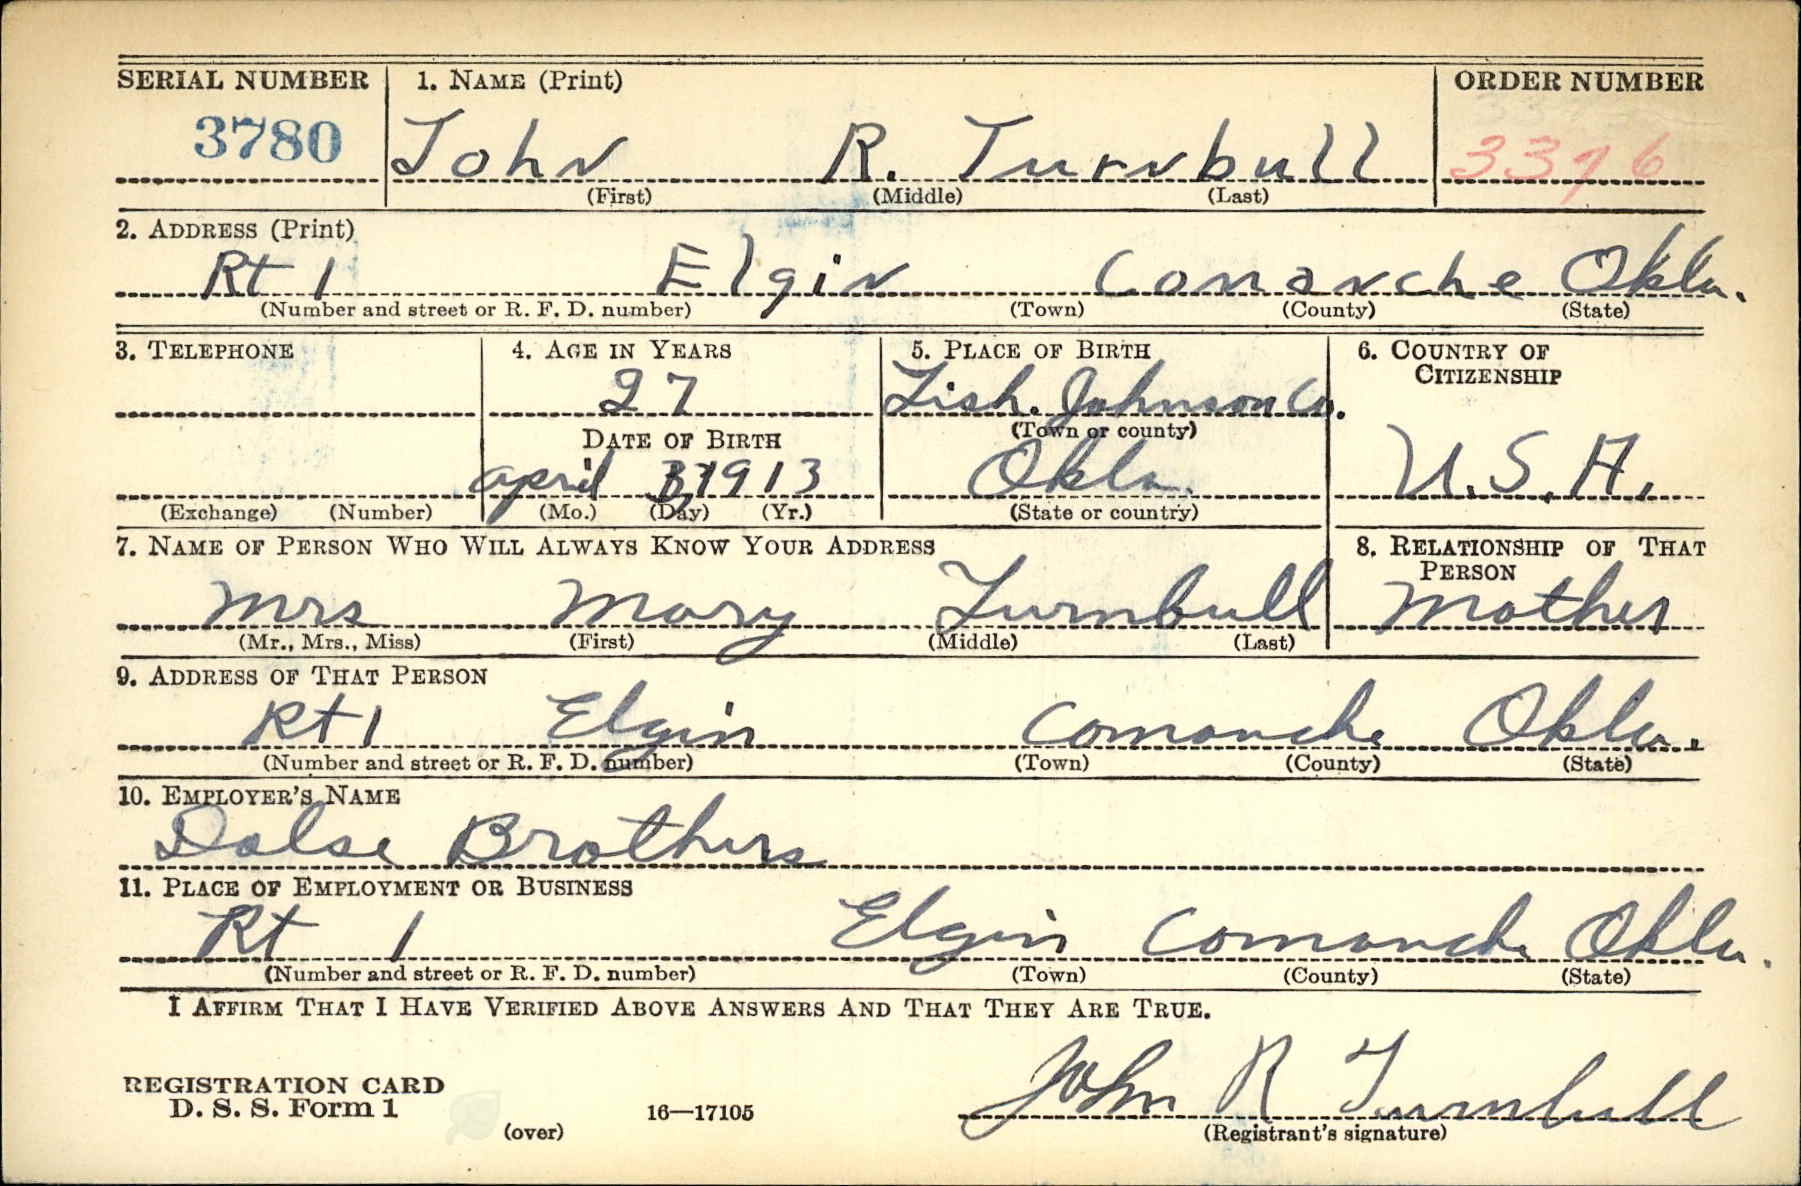 SERIAL NUMBER 1. NAME (Print) ORDER NUMBER
3780 John R. Turnbull 3376
(First) (Middle) (Last)
2. ADDRESS (Print)
Rt 1 Elgin Comanche Okla.
(Number and street or R. F. D. number) (Town) (County) (State)
3. TELEPHONE 4. AGE IN YEARS 5. PLACE OF BIRTH 6. COUNTRY OF CITIZENSHIP
27 Tish. Johnson Co.
DATE OF BIRTH (Town or county)
April 1913 Okla. U.S.A.
(Exchange) (Number) (Mo.) (Day) (Yr.) (State or country)
7. NAME OF PERSON WHO WILL ALWAYS KNOW YOUR ADDRESS 8. RELATIONSHIP OF THAT PERSON
Mrs Mary Turnbull Mother
(Mr., Mrs., Miss) (First) (Middle) (Last)
9. ADDRESS OF THAT PERSON
Rt 1 Elgin Comanche Okla.
(Number and street or R. F. D. number) (Town) (County) (State)
10. EMPLOYER'S NAME
Brothers
11. PLACE OF EMPLOYMENT OR BUSINESS
Rt 1 Elgin Comanche Okla.
(Number and street or R. F. D. number) (Town) (County) (State)
I AFFIRM THAT I HAVE VERIFIED ABOVE ANSWERS AND THAT THEY ARE TRUE.
John R Turnbull
REGISTRATION CARD
D. S. S. Form 1 16—17105
(over) (Registrant's signature)